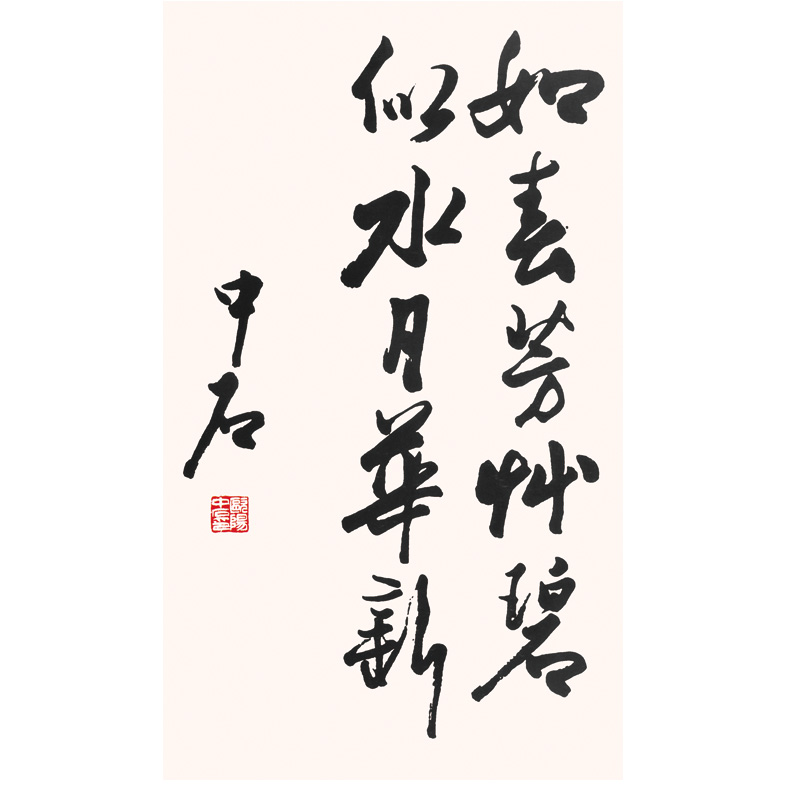 如春芳艸碧
似水月華新
中石
歐陽中石